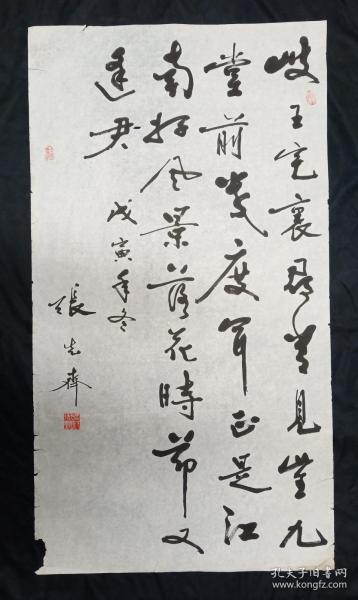 岐王宅裏尋常見崔九
堂前幾度聞正是江
南好風景落花時節又
逢君
戊寅年冬
張志齊
孔夫子旧书网